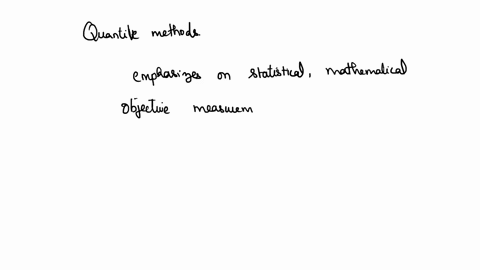 Quantile methods.
emphasizes on statistical, mathematical
objective measurem